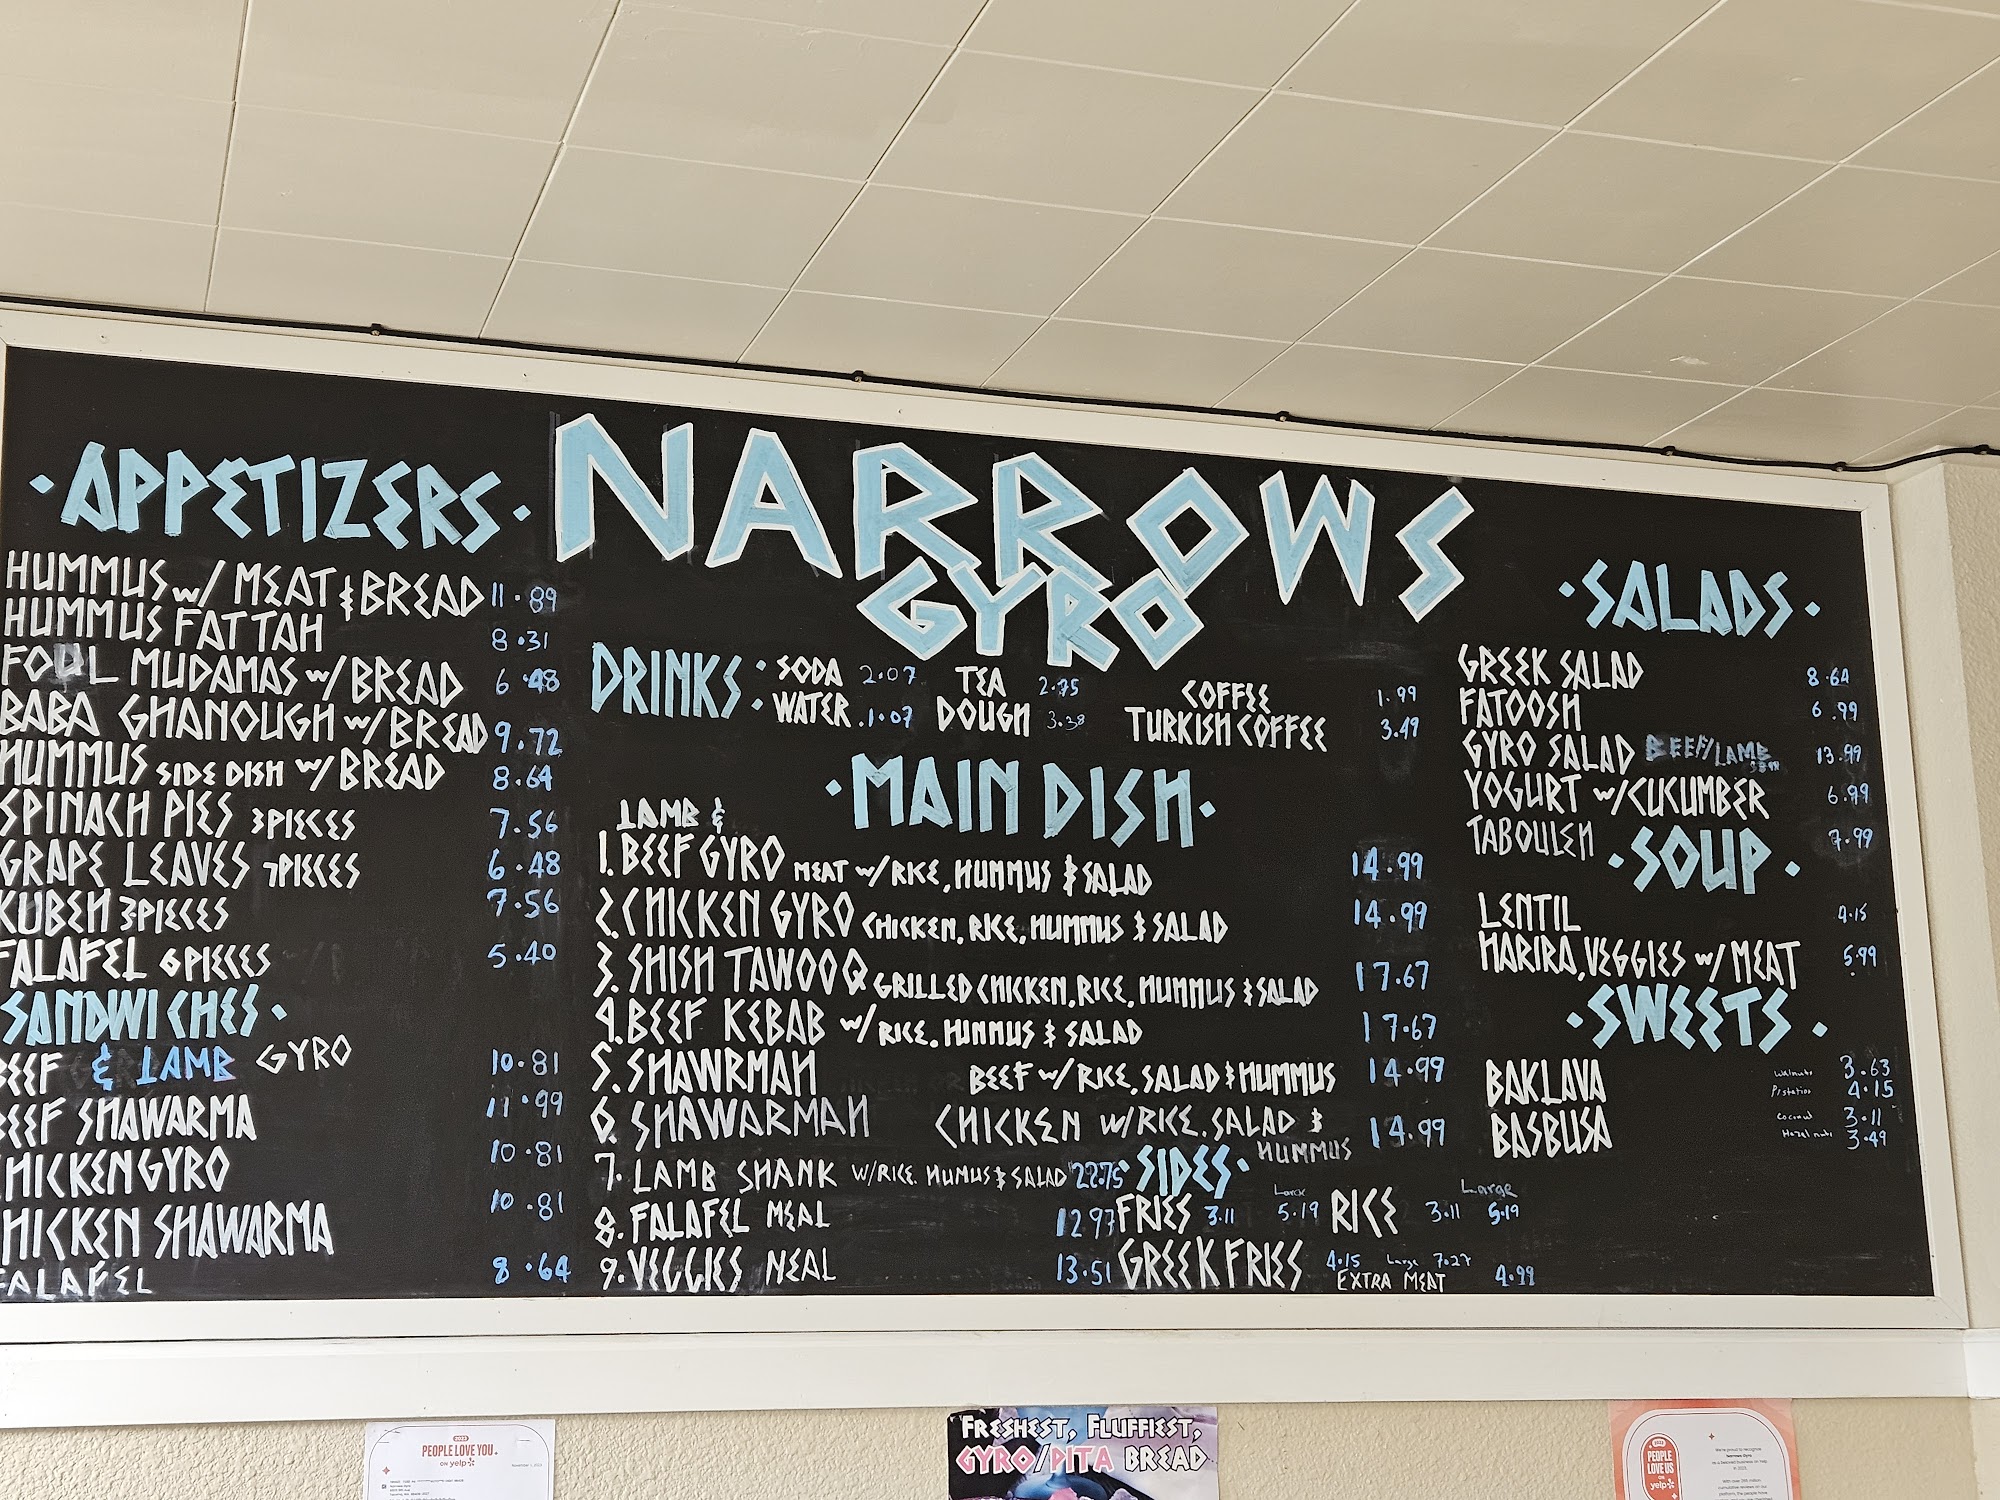 NARROWS
GYRO
· APPETIZERS ·
HUMMUS w/ MEAT & BREAD 11.89
HUMMUS FATTAH 8.31
FOUL MUDAMAS w/ BREAD 6.48
BABA GHANOUGH w/ BREAD 9.72
HUMMUS SIDE DISH w/ BREAD 8.64
SPINACH PIES 3PIECES 7.56
GRAPE LEAVES 7PIECES 6.48
KUBEH 3PIECES 7.56
FALAFEL 6PIECES 5.40
SANDWICHES ·
BEEF & LAMB GYRO 10.81
BEEF SHAWARMA 11.99
CHICKEN GYRO 10.81
CHICKEN SHAWARMA 10.81
FALAFEL 8.64
DRINKS:
SODA 2.07 TEA 2.75 COFFEE 1.99
WATER .1.07 DOUGH 3.38 TURKISH COFFEE 3.49
· MAIN DISH ·
LAMB &
1. BEEF GYRO MEAT w/ RICE, HUMMUS & SALAD 14.99
2. CHICKEN GYRO CHICKEN, RICE, HUMMUS & SALAD 14.99
3. SHISH TAWOOQ GRILLED CHICKEN, RICE, HUMMUS & SALAD 17.67
4. BEEF KEBAB w/ RICE, HUMMUS & SALAD 17.67
5. SHAWRMAH BEEF w/ RICE, SALAD & HUMMUS 14.99
6. SHAWARMAH CHICKEN W/RICE, SALAD & HUMMUS 14.99
7. LAMB SHANK W/RICE, HUMUS & SALAD 22.75
8. FALAFEL MEAL 12.97
9. VEGGIES MEAL 13.51
· SIDES ·
Large Large
FRIES 3.11 5.19 RICE 3.11 5.19
GREEK FRIES 4.15 Large 7.27
EXTRA MEAT 4.99
· SALADS ·
GREEK SALAD 8.64
FATOOSH 6.99
GYRO SALAD BEEF/LAMB 13.99
YOGURT w/CUCUMBER 6.99
TABOULEH 7.99
· SOUP ·
LENTIL 4.15
HARIRA, VEGGIES w/ MEAT 5.99
· SWEETS ·
BAKLAVA Walnuts 3.63
Pistatios 4.15
BASBUSA Coconut 3.11
Hazelnuts 3.49
2023
PEOPLE LOVE YOU.
ON yelp
November 1, 2023
FRESHEST, FLUFFIEST,
GYRO/PITA BREAD
2023
PEOPLE
LOVE US
ON
yelp
We're proud to recognize
Narrows Gyro
as a beloved business on Yelp
in 2023.
With over 265 million
cumulative reviews on our
platform, the people have